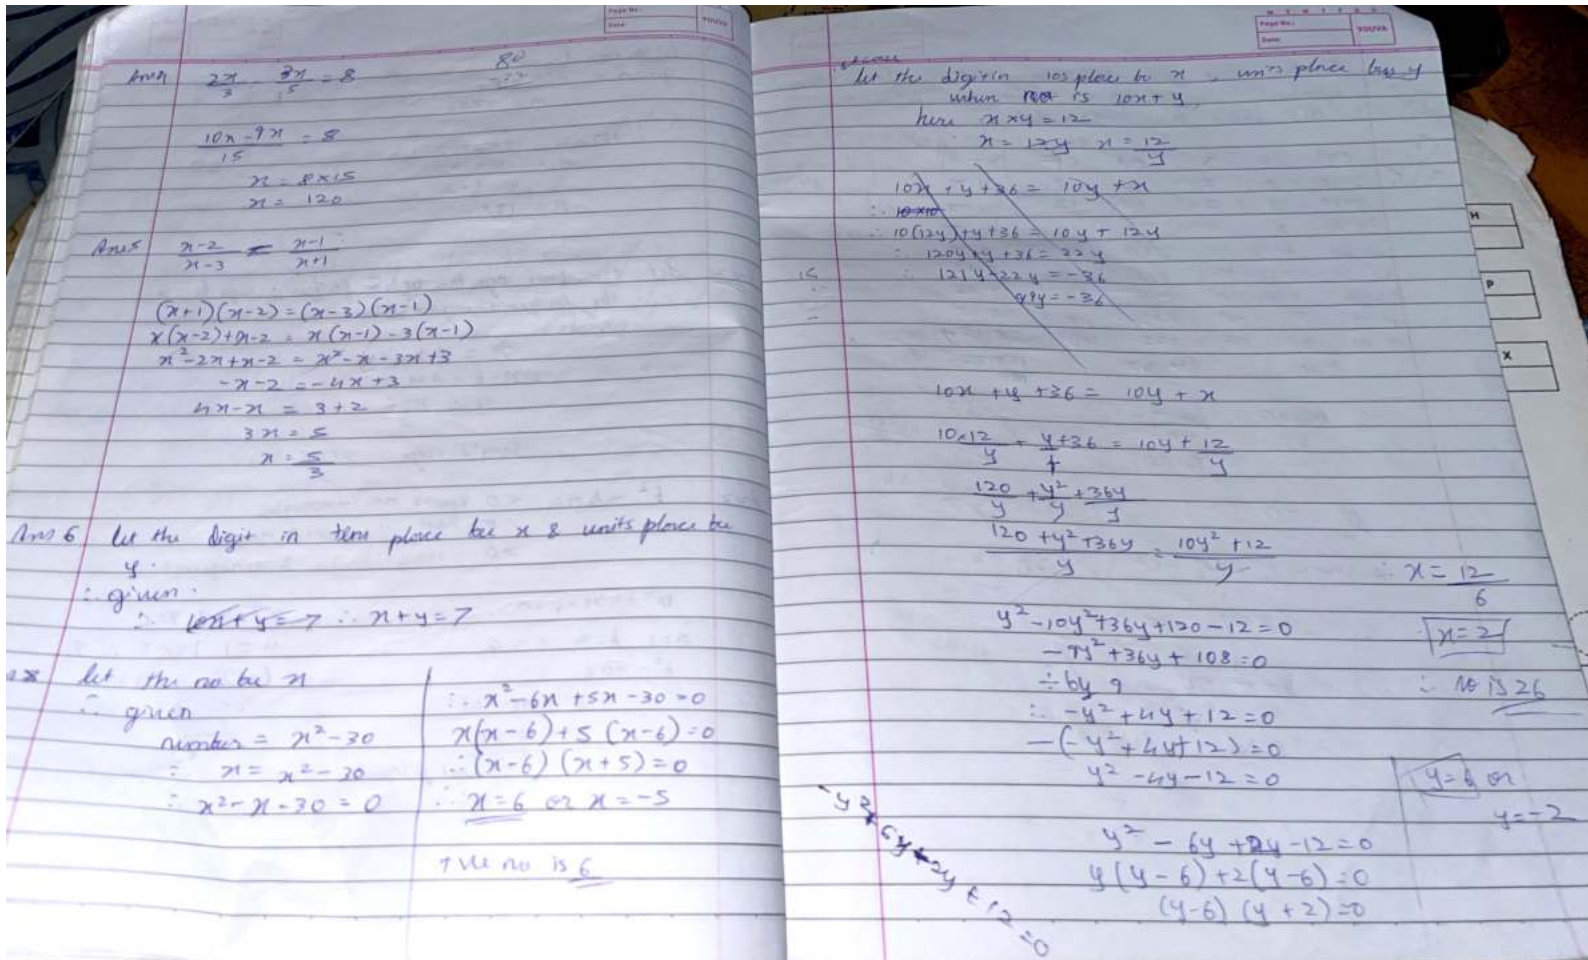 Page No.:
Date:
YOUVA
Ans4 2x/3 - 3x/5 = 8
80
(10x - 9x)/15 = 8
x = 8×15
x = 120
Ans5 (x-2)/(x-3) = (x-1)/(x+1)
(x+1)(x-2) = (x-3)(x-1)
x(x-2)+x-2 = x(x-1)-3(x-1)
x²-2x+x-2 = x²-x-3x+3
-x-2 = -4x+3
4x-x = 3+2
3x = 5
x = 5/3
Ans 6 let the digit in tens place be x & units place be
y.
∴ given.
∴ 10x+y=7 ∴ x+y=7
8 let the no be x
∴ given
number = x²-30
∴ x = x²-30
∴ x²-x-30 = 0
∴ x²-6x+5x-30=0
x(x-6)+5(x-6)=0
∴ (x-6)(x+5)=0
∴ x=6 or x=-5
+ve no is 6
M T W T F S
Page No.:
Date:
YOUVA
let the digit in 10s place be x, units place be y
when no is 10x+y
here x×y=12
x = 12y x = 12/y
10x+y+36 = 10y+x
∴ 10×10
∴ 10(12y)+y+36 = 10y+12y
∴ 120y+y+36 = 22y
∴ 121y-22y = -36
99y = -36
15
10x+y+36 = 10y+x
10×12/y + y+36/1 = 10y+12/y
120/y + y²/y + 36y/y
(120+y²+36y)/y = (10y²+12)/y
y²-10y²+36y+120-12=0
-9y²+36y+108=0
÷ by 9
∴ -y²+4y+12=0
-(-y²+4y+12)=0
y²-4y-12=0
y²-6y+2y-12=0
y(y-6)+2(y-6)=0
(y-6)(y+2)=0
y=6 or
y=-2
∴ x = 12/6
x=2
∴ no is 26
-y²+6y-2y+12=0
H
P
X